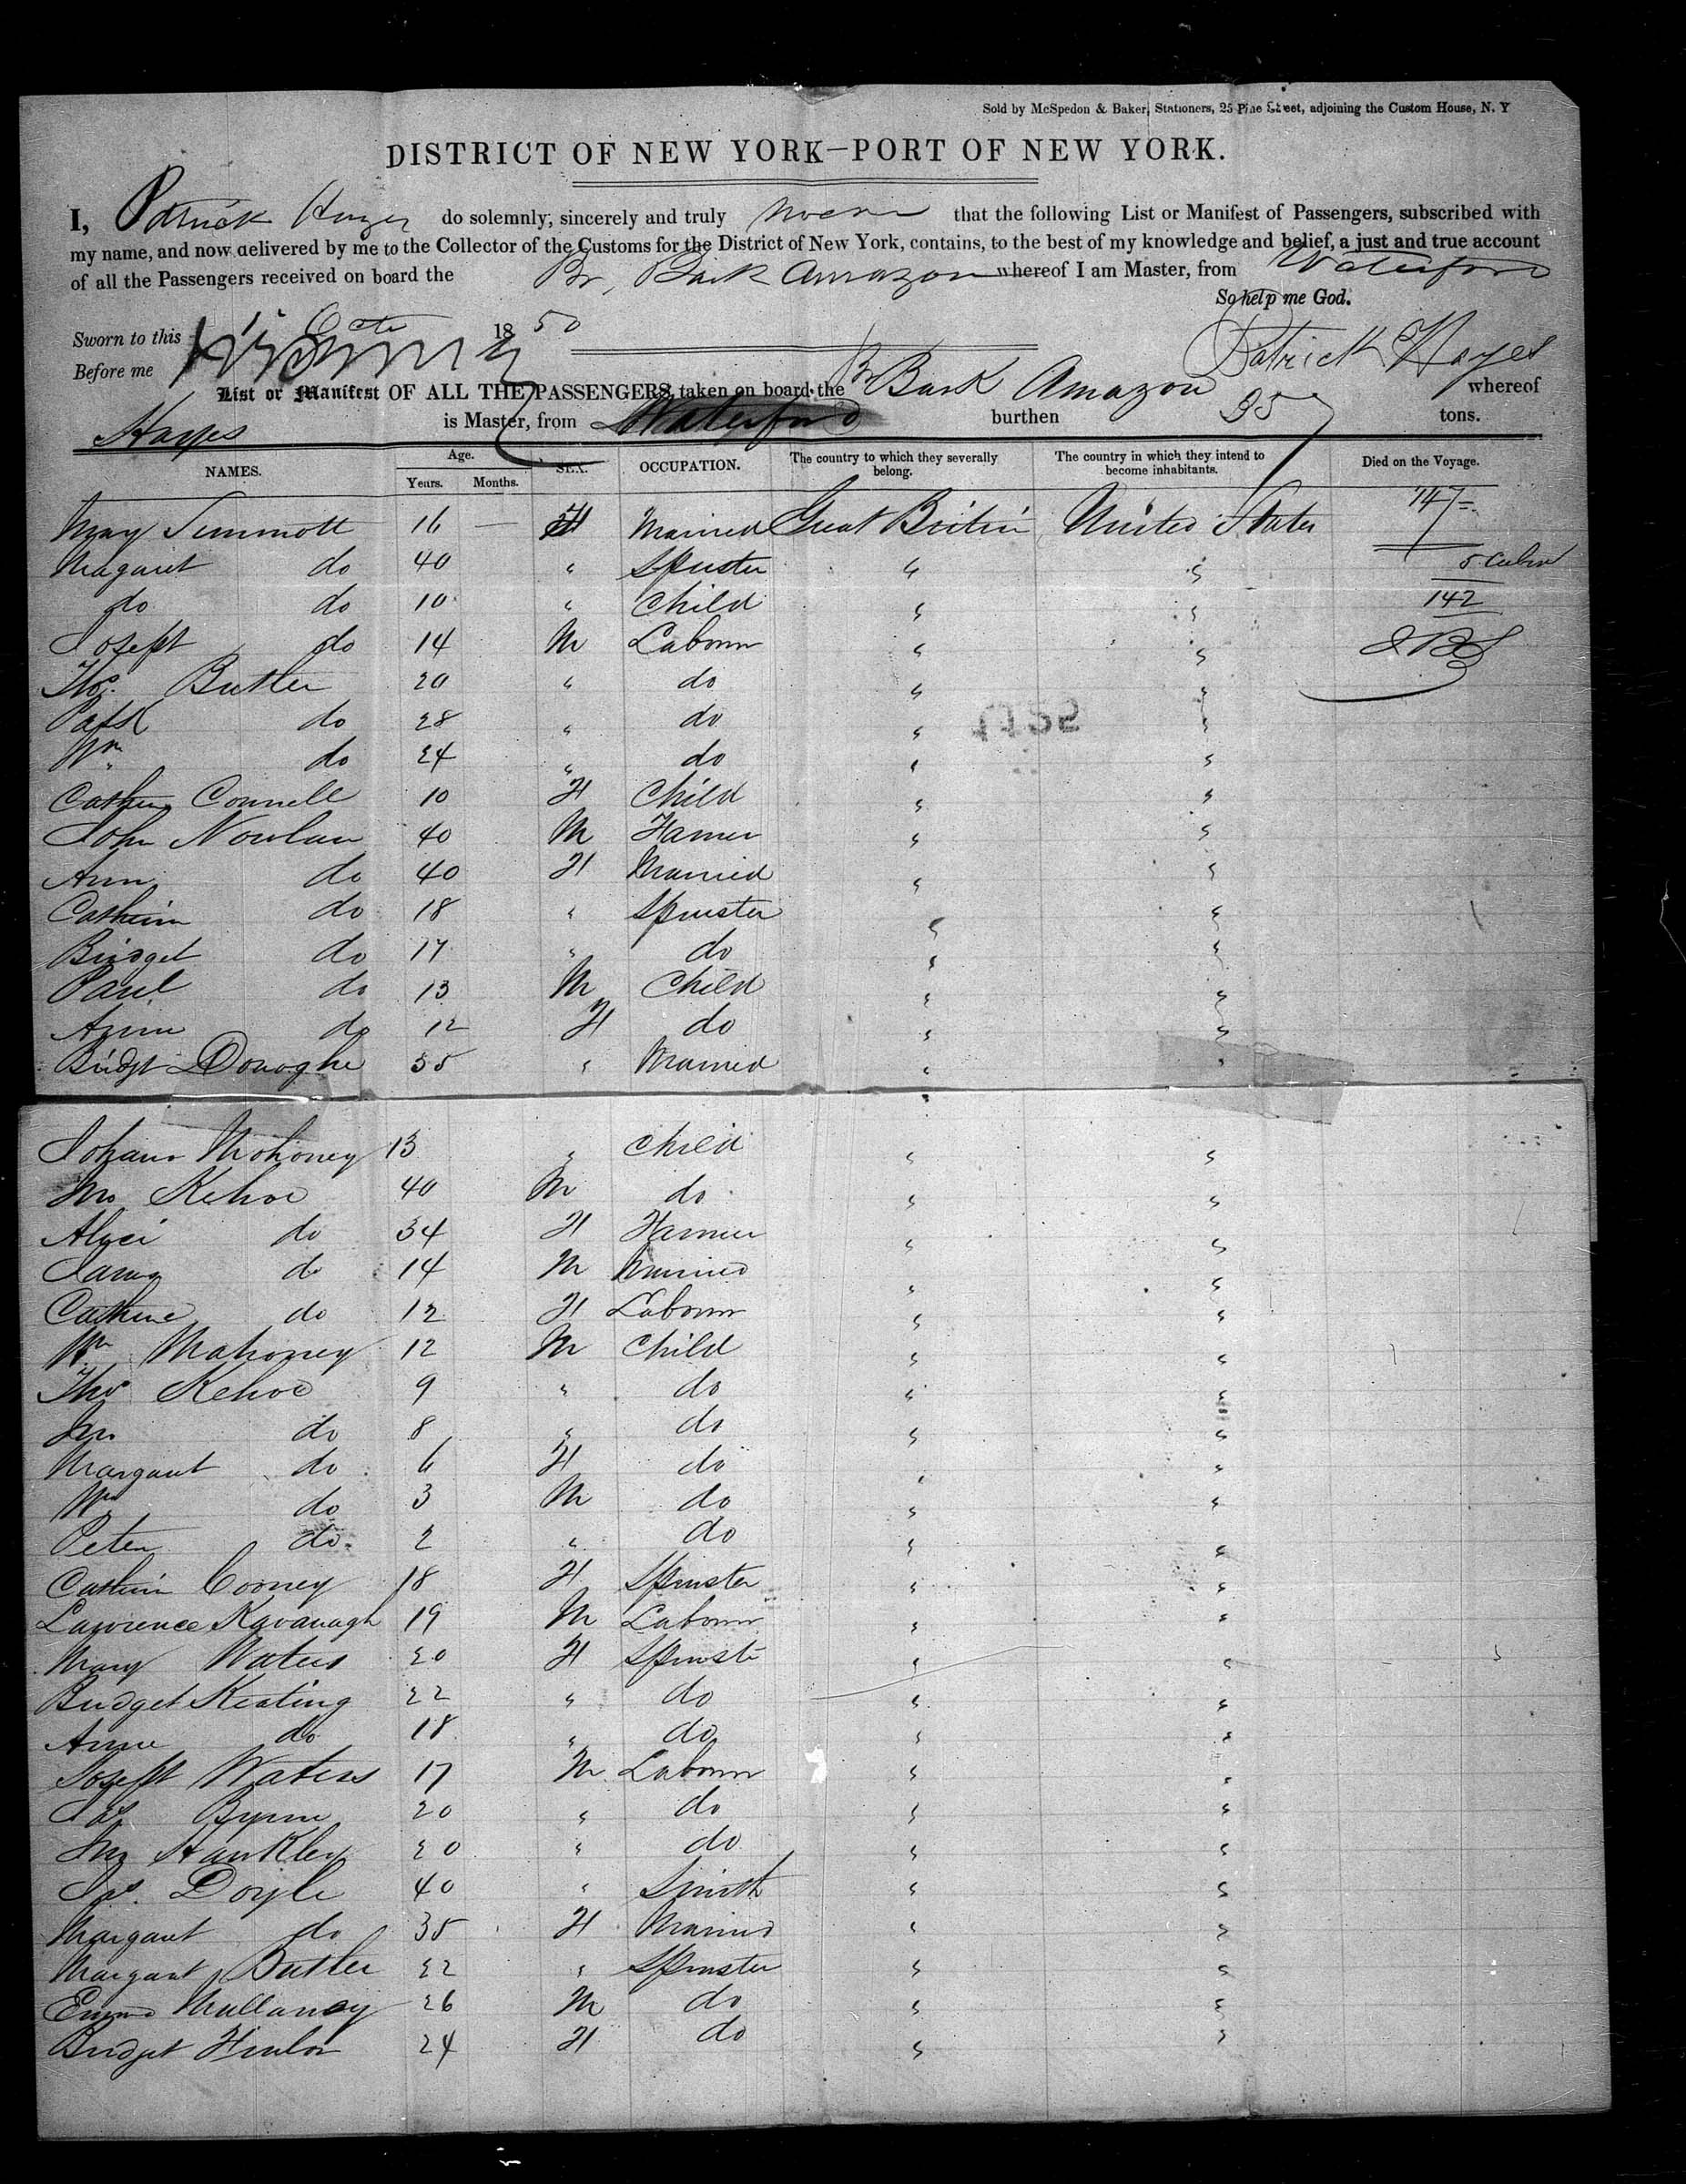 Sold by McSpedon & Baker, Stationers, 25 Pine Street, adjoining the Custom House, N. Y
DISTRICT OF NEW YORK—PORT OF NEW YORK.
I, Patrick Hayes do solemnly, sincerely and truly swear that the following List or Manifest of Passengers, subscribed with
my name, and now delivered by me to the Collector of the Customs for the District of New York, contains, to the best of my knowledge and belief, a just and true account
of all the Passengers received on board the Br, Bark Amazon whereof I am Master, from Waterford
So help me God.
Sworn to this Octr 1850
Patrick Hayes
Before me
List or Manifest OF ALL THE PASSENGERS taken on board the Br Bark Amazon whereof
Hayes is Master, from Waterford burthen tons.
NAMES. Age. Years. Months. SEX. OCCUPATION. The country to which they severally belong. The country in which they intend to become inhabitants. Died on the Voyage.
Mary Sinnmott 16 — F Married Great Britin United States 147
Magaret do 40 " Spinster " " 5 Cabin
do do 10 " Child " " 142
Joseph do 14 M Labourr " "
Thos. Butler 20 " do " "
Patk do 28 " do " "
Wm do 24 " do " "
Cathn Connell 10 F Child " "
John Nowlan 40 M Farmer " "
Ann do 40 F Married " "
Catherin do 18 " Spinster " "
Bridget do 17 " do " "
Paul do 13 M Child " "
Ann do 12 F do " "
Bridgt Donoghe 35 " Married " "
Johana Mohoney 13 " Child " "
Jno Kehoe 40 M do " "
Alyci do 34 F Farmer " "
James do 14 M Married " "
Cathine do 12 F Labourr " "
Wm Mahoney 12 M Child " "
Thos Kehoe 9 " do " "
Jno do 8 " do " "
Margaret do 6 F do " "
Wm do 3 M do " "
Peter do 2 " do " "
Catherin Cooney 18 F Spinster " "
Lawrence Kavanagh 19 M Labourr " "
Mary Waters 20 F Spinste " "
Bridget Keating 22 " do " "
Anne do 18 " do " "
Joseph Waters 17 M Labourr " "
Jas Byrne 20 " do " "
Jno 20 " do " "
Jas. Doyle 40 " Smith " "
Margaret do 35 F Married " "
Margaret Butler 22 " Spinster " "
Mullaney 26 M do " "
Bridget 24 F do " "